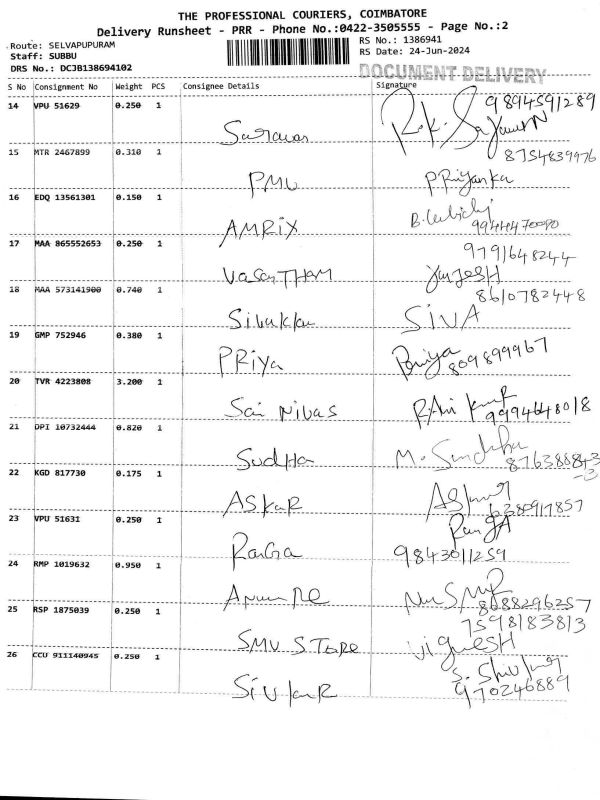 THE PROFESSIONAL COURIERS, COIMBATORE
Delivery Runsheet - PRR - Phone No.:0422-3505555 - Page No.:2
Route: SELVAPUPURAM
RS No.: 1386941
Staff: SUBBU
RS Date: 24-Jun-2024
DRS No.: DCJB138694102
DOCUMENT DELIVERY
S No Consignment No Weight PCS Consignee Details Signature
14 VPU 51629 0.250 1
9894591289
Saravan
15 MTR 2467899 0.310 1
8754839976
PMU PRiyanka
16 EDQ 13561301 0.150 1
AMRIX
9944470090
17 MAA 865552653 0.250 1
9791648244
VasanTHAM
18 MAA 573141900 0.740 1
8610782448
SIVA
19 GMP 752946 0.380 1
PRiya Priya
809899967
20 TVR 4223808 3.200 1
Sai Nivas
9994648018
21 DPI 10732444 0.820 1
Sudha M.
22 KGD 817730 0.175 1
ASKAR
6380917857
23 VPU 51631 0.250 1
9843011259
24 RMP 1019632 0.950 1
8088296257
25 RSP 1875039 0.250 1
7598183813
SMV STORE vignesh
26 CCU 911140945 0.250 1
970246889